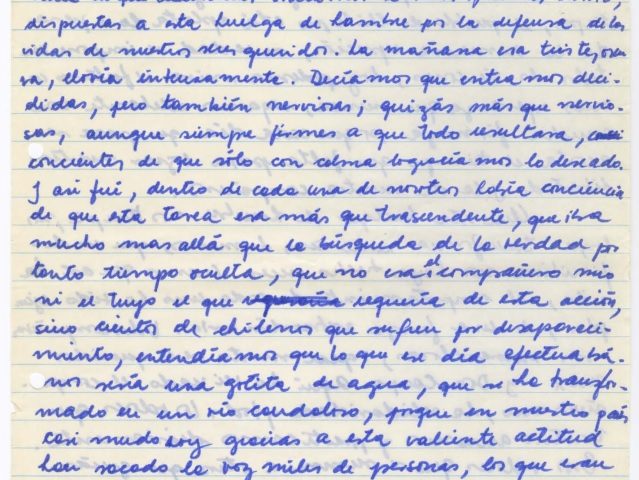 dispuestas a esta huelga de hambre por la defensa de las
vidas de nuestros seres queridos. La mañana era triste, oscu
ra, llovía intensamente. Decíamos que entramos deci-
didas, pero también nerviosas; quizás más que nervio-
sas, aunque siempre firmes a que todo resultara,
concientes de que sólo con calma lograríamos lo deseado.
Y asi fué, dentro de cada una de nosotras había conciencia
de que esta tarea era más que trascendente, que iba
mucho mas allá que la búsqueda de la verdad por
tanto tiempo oculta, que no era el compañero mío
ni el tuyo el que requería de esta acción,
sino cientos de chilenos que sufren por desapareci-
miento, entendíamos que lo que ese día efectuaba-
mos sería una gotita de agua, que se ha transfor-
mado en un río caudaloso, porque en nuestro país
casi mudo hoy gracias a esta valiente actitud
han sacado la voz miles de personas, los que eran